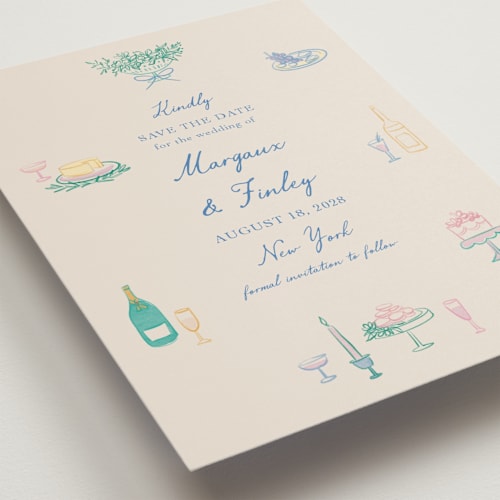 Kindly
SAVE THE DATE
for the wedding of
Margaux
& Finley
AUGUST 18, 2028
New York
formal invitation to follow